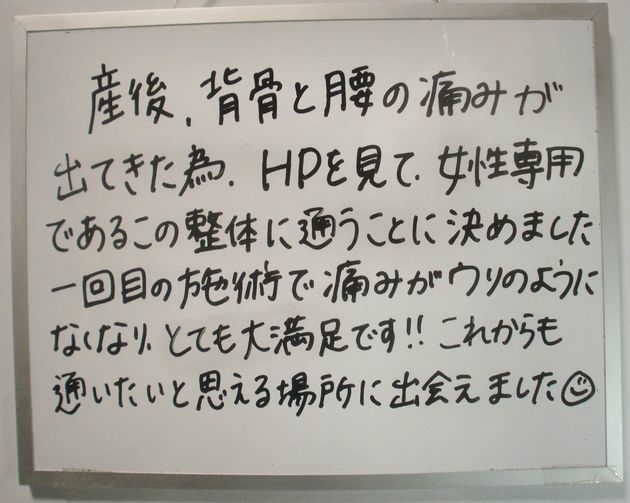 産後、背骨と腰の痛みが
出てきた為、HPを見て、女性専用
であるこの整体に通うことに決めました
一回目の施術で痛みがウソのように
なくなり、とても大満足です!! これからも
通いたいと思える場所に出会えました☺